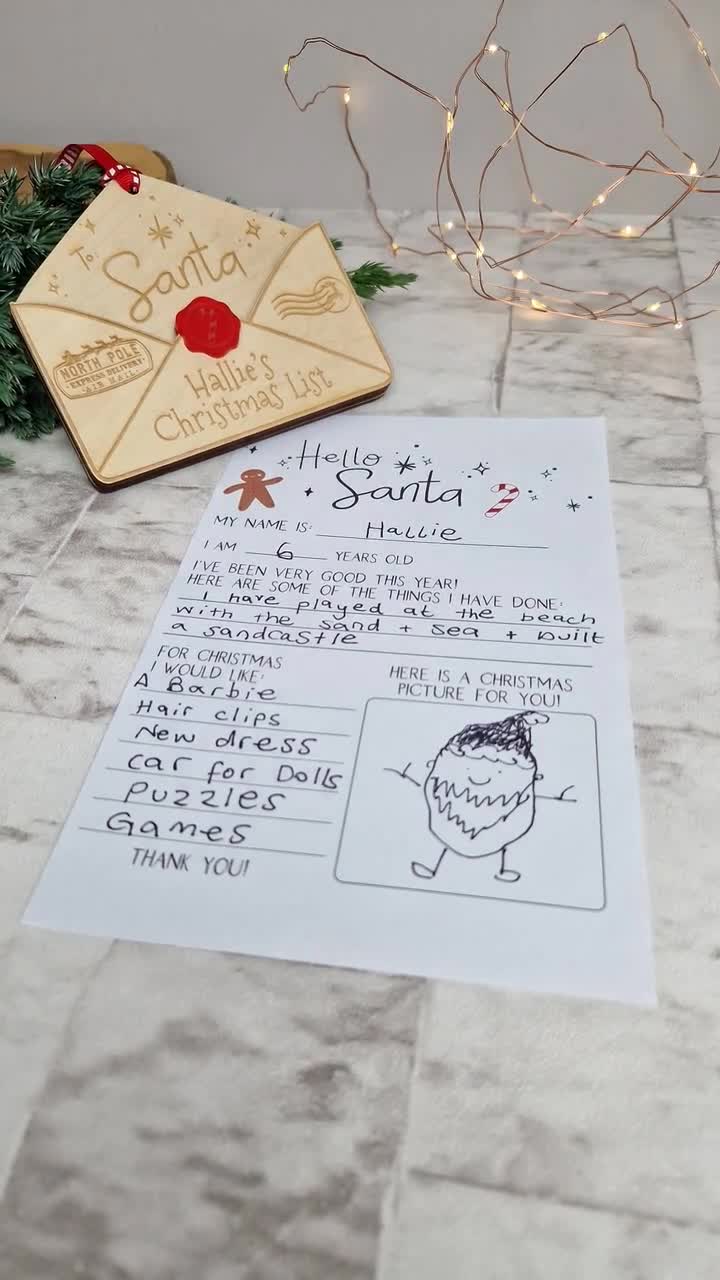 To
Santa
NORTH POLE
EXPRESS DELIVERY
AIR MAIL
Hallie's
Christmas List
Hello
Santa
MY NAME IS: Hallie
I AM 6 YEARS OLD
I'VE BEEN VERY GOOD THIS YEAR!
HERE ARE SOME OF THE THINGS I HAVE DONE:
I have played at the beach
with the sand + sea + built
a sandcastle
FOR CHRISTMAS
I WOULD LIKE:
A Barbie
Hair clips
New dress
Car for Dolls
Puzzles
Games
THANK YOU!
HERE IS A CHRISTMAS
PICTURE FOR YOU!